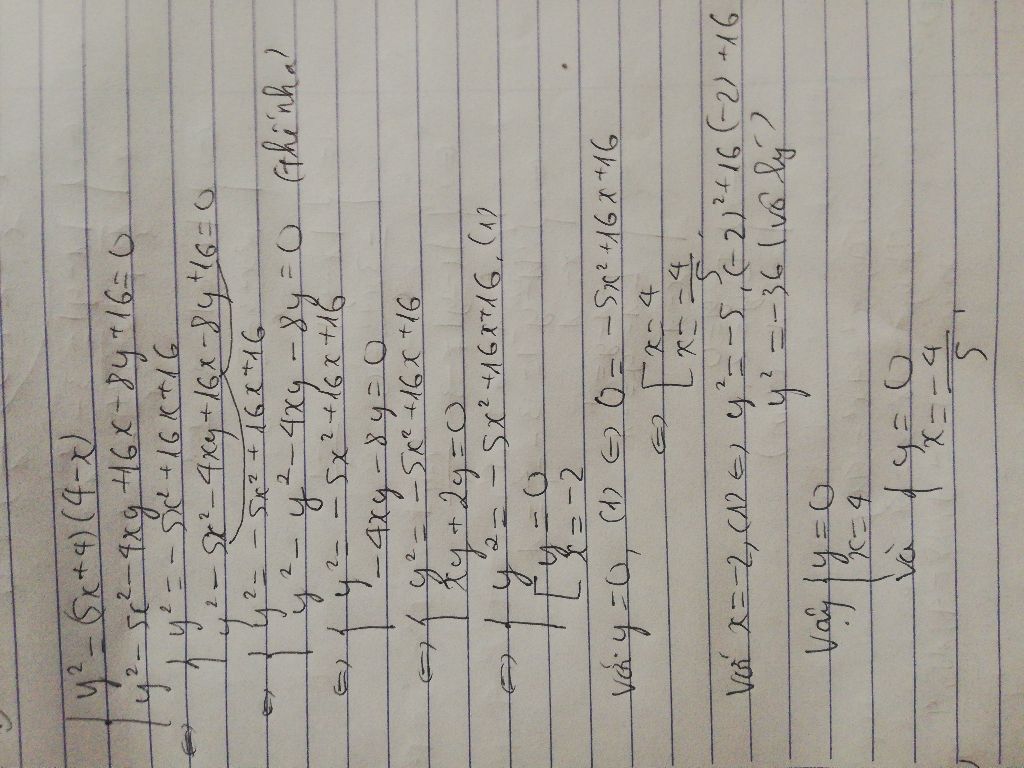 { y² = (5x+4)(4-x)
y² - 5x² - 4xy + 16x - 8y + 16 = 0
⇔ { y² = -5x² + 16x + 16
y² - 5x² - 4xy + 16x - 8y + 16 = 0
⇔ { y² = -5x² + 16x + 16
y² - y² - 4xy - 8y = 0 (thế nha)
⇔ { y² = -5x² + 16x + 16
-4xy - 8y = 0
⇔ { y² = -5x² + 16x + 16
xy + 2y = 0
⇔ { y² = -5x² + 16x + 16, (1)
[ y = 0
x = -2
Với y = 0, (1) ⇔ 0 = -5x² + 16x + 16
⇔ [ x = 4
x = -4/5
Với x = -2, (1) ⇔ y² = -5.(-2)² + 16(-2) + 16
y² = -36 (vô lý)
Vậy { y = 0
x = 4
và { y = 0
x = -4/5